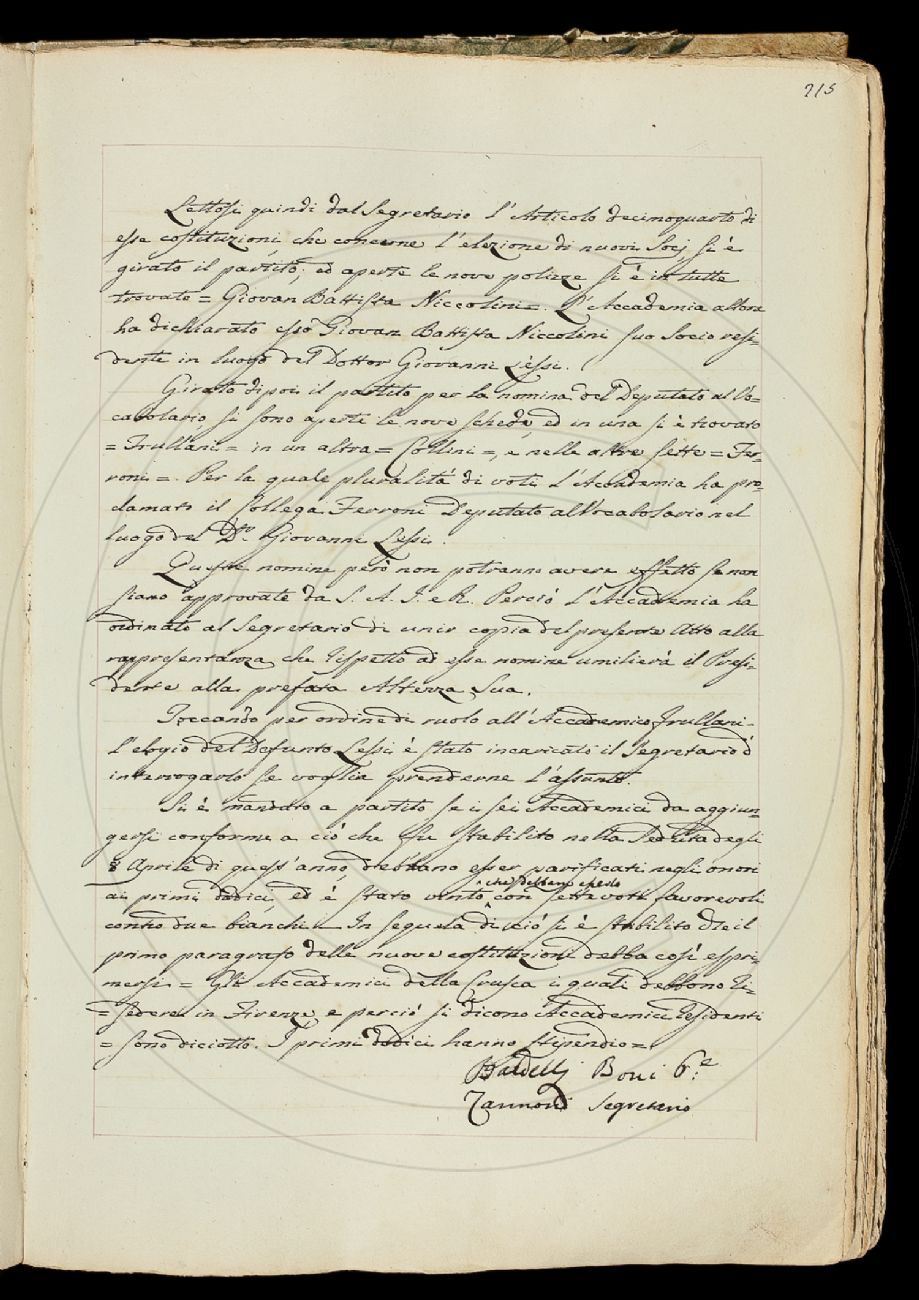 215
Lettosi quindi dal Segretario l'Articolo decimoquarto di
esse costituzioni che concerne l'elezione di nuovi Socj si è
girato il partito, ed aperte le nove polizze si è in tutte
trovato = Giovan Battista Niccolini =. L'Accademia allora
ha dichiarato esso Giovan Battista Niccolini suo Socio resi-
dente in luogo del Dottor Giovanni Lessi.
Girato dipoi il partito per la nomina del Deputato al Vo=
cabolario, si sono aperte le nove schede, ed in una si è trovato
= Frullani = in un altra = Collini =, e nelle altre sette = Fer-
roni =. Per la quale pluralità di voti l'Accademia ha pro=
clamato il Collega Ferroni Deputato al Vocabolario nel
luogo del D.re Giovanni Lessi.
Queste nomine però non potranno avere effetto se non
siano approvate da S. A. I. e R. Perciò l'Accademia ha
ordinato al Segretario di unir copia del presente Atto alla
rappresentanza che rispetto ad esse nomine umilierà il Presi-
dente alla prefata Altezza Sua.
Toccando per ordine di ruolo all'Accademico Frullani
l'elogio del Defunto Lessi è stato incaricato il Segretario d'
interrogarlo se voglia prenderne l'assunto.
Si è mandato a partito se i sei Accademici da aggiun-
gersi conforme a ciò che fu stabilito nella Seduta degli
8 Aprile di quest'anno debbano esser parificati negli onori
ai primi dodici, ed è stato vinto che debbano esserlo con sette voti favorevoli
contro due bianchi. In sequela di ciò si è stabilito che il
primo paragrafo delle nuove costituzioni debba così espri-
mersi = Gli Accademici della Crusca i quali debbono ri-
= sedere in Firenze e perciò si dicono Accademici residenti
= sono diciotto. I primi dodici hanno stipendio =
Baldelli Boni
Zannoni Segretario